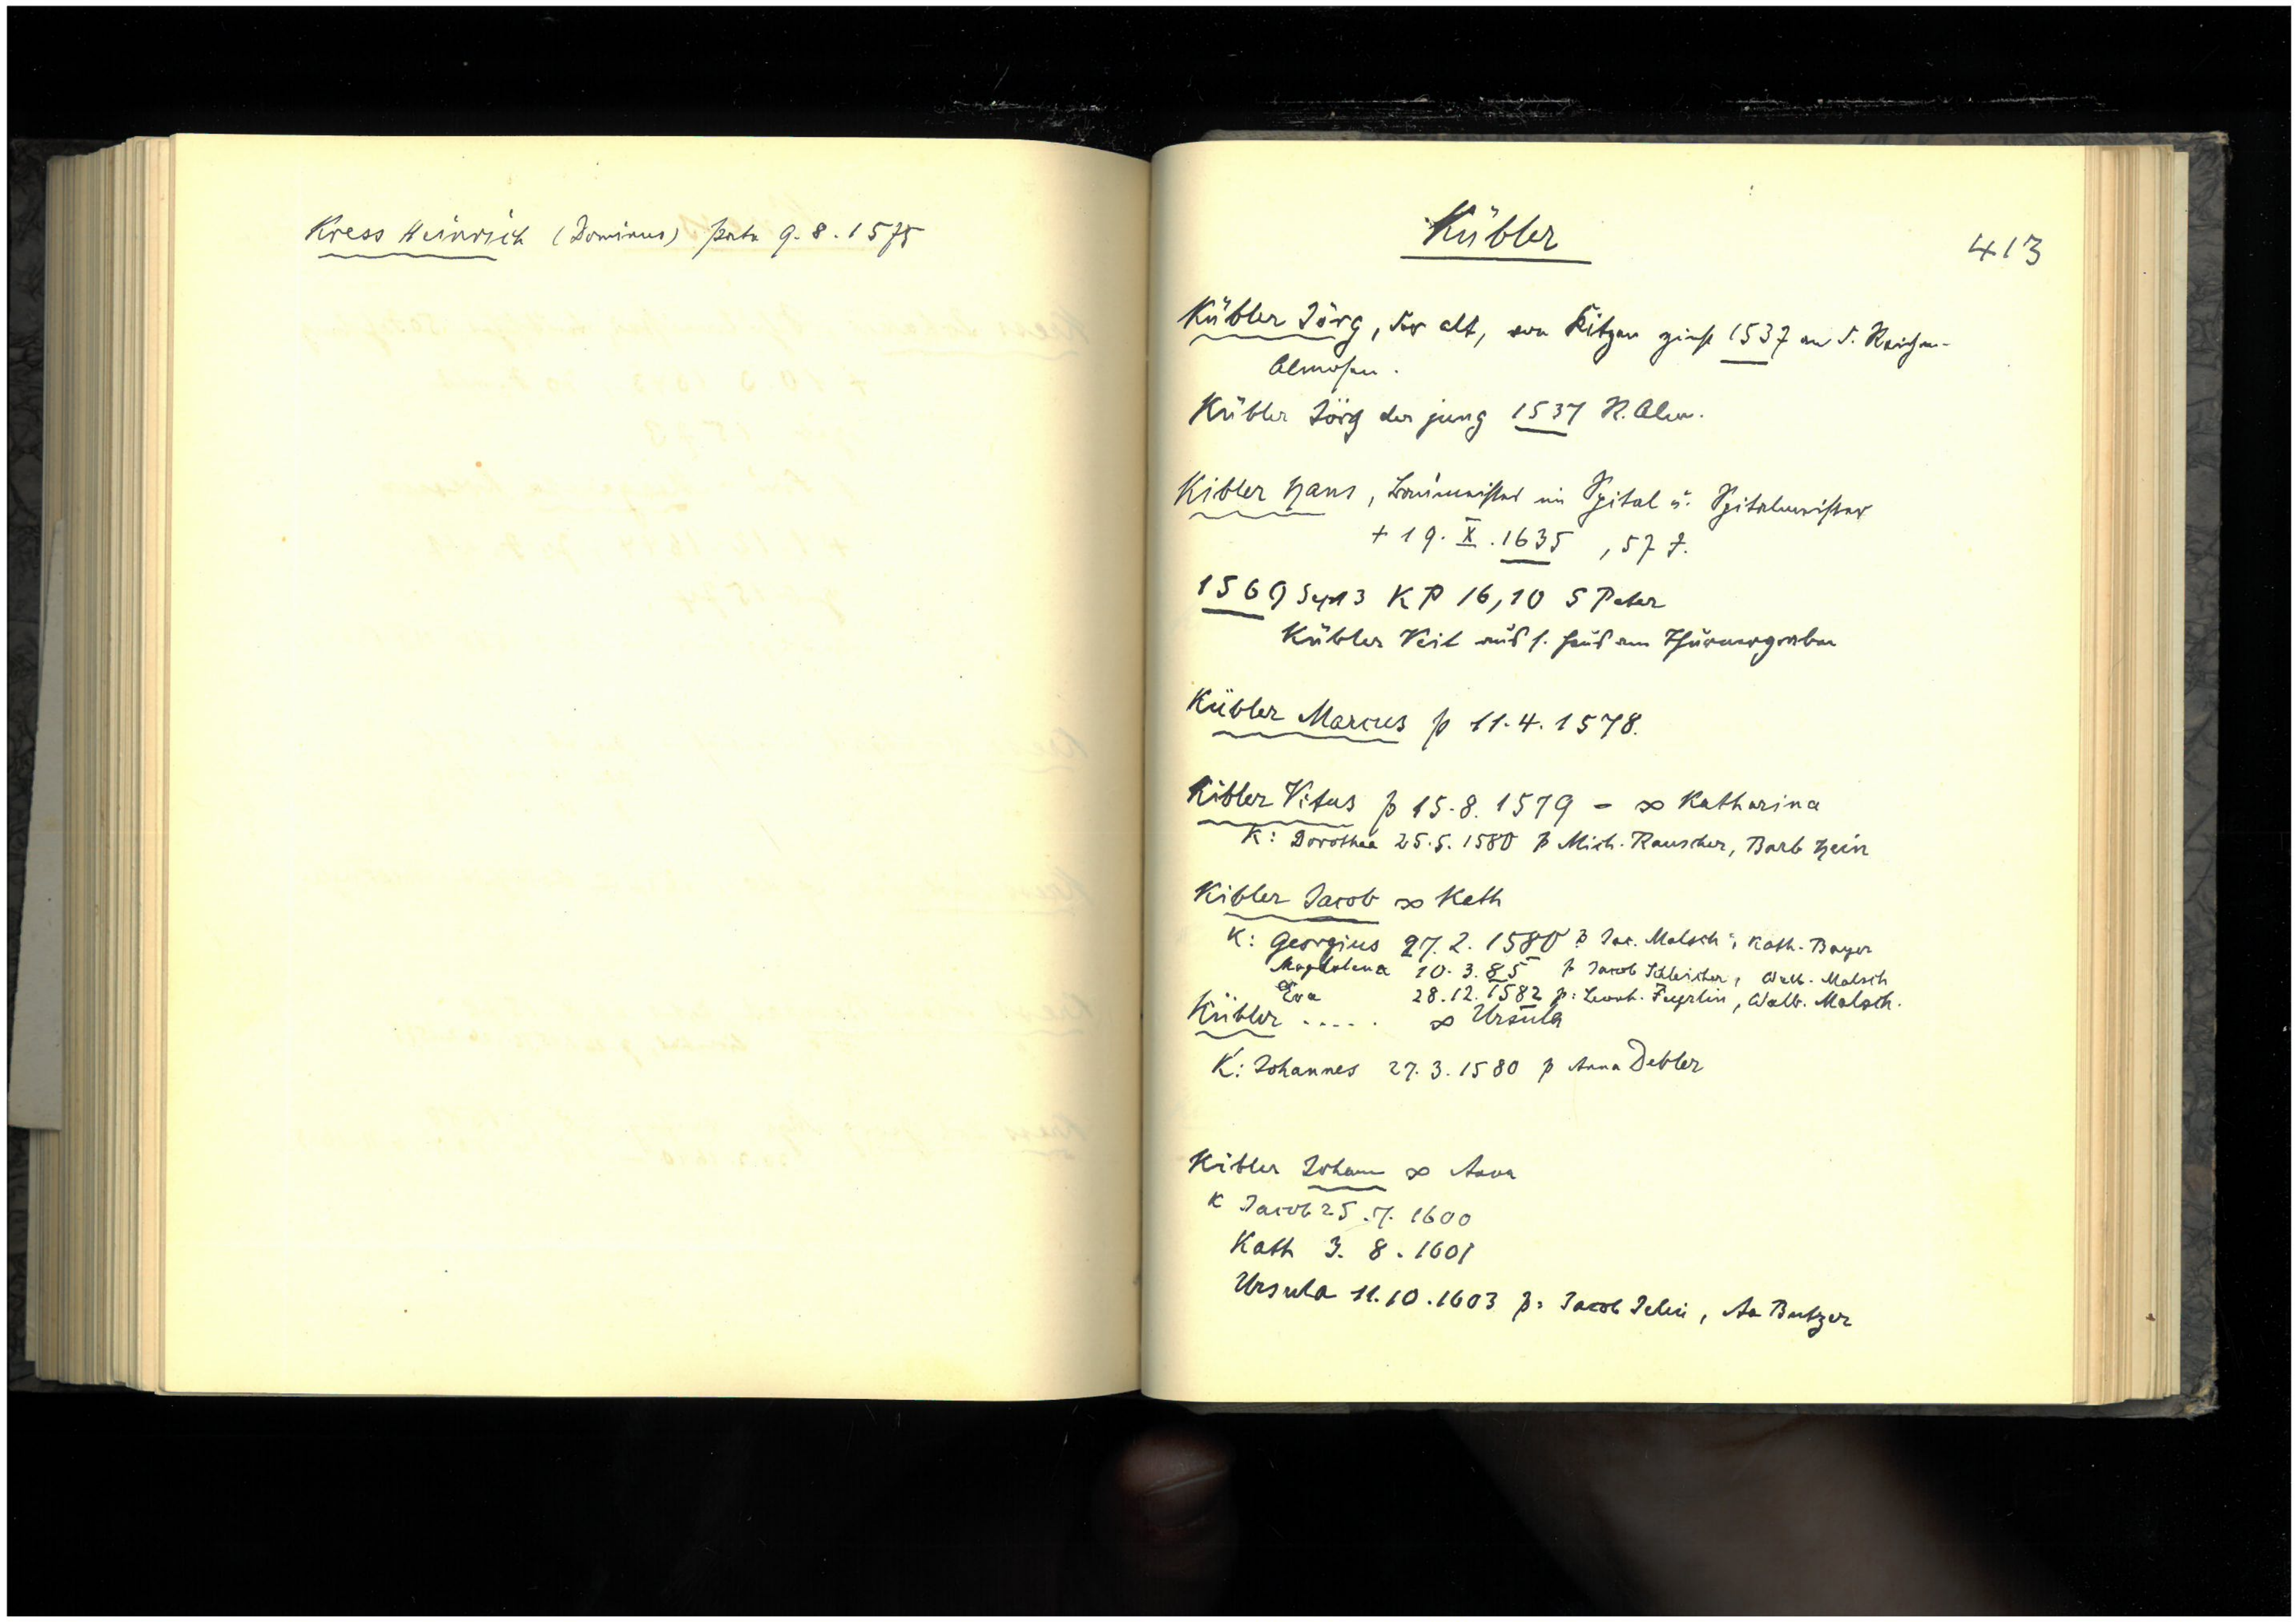 Kress Heinrich (Dominus) pate 9.8.1575
Kübler
413
Kübler Jörg, der alt, von zinst 1537 an d. Reichen-
Almosen.
Kübler Jörg der jung 1537 R. Alm.
Kibler Hans, Baumeister im Spital u. Spitalmeister
+ 19. X. 1635, 57 J.
1569 Sept 3 KP 16,10 S Peter
Kübler Veit aus s. Haus am Thürnergraben
Kübler Marcus p 11.4.1578.
Kibler Vitus p 15.8.1579 - ∞ Katharina
K: Dorothea 25.5.1580 p Mich. Rauscher, Barb Hein
Kibler Jacob ∞ Kath
K: Georgius 27.2.1580 p Jac. Malsch, Kath. Bayer
Magdalena 10.3.85 p Jacob Schleicher, Walb. Malsch
Eva 28.12.1582 p: Leonh. Walb. Malsch.
Kübler ..... ∞ Ursula
K: Johannes 27.3.1580 p Anna Debler
Kibler Johann ∞ Anna
K Jacob 25.7.1600
Kath 3.8.1601
Ursula 11.10.1603 p: Jacob Aa Butzer